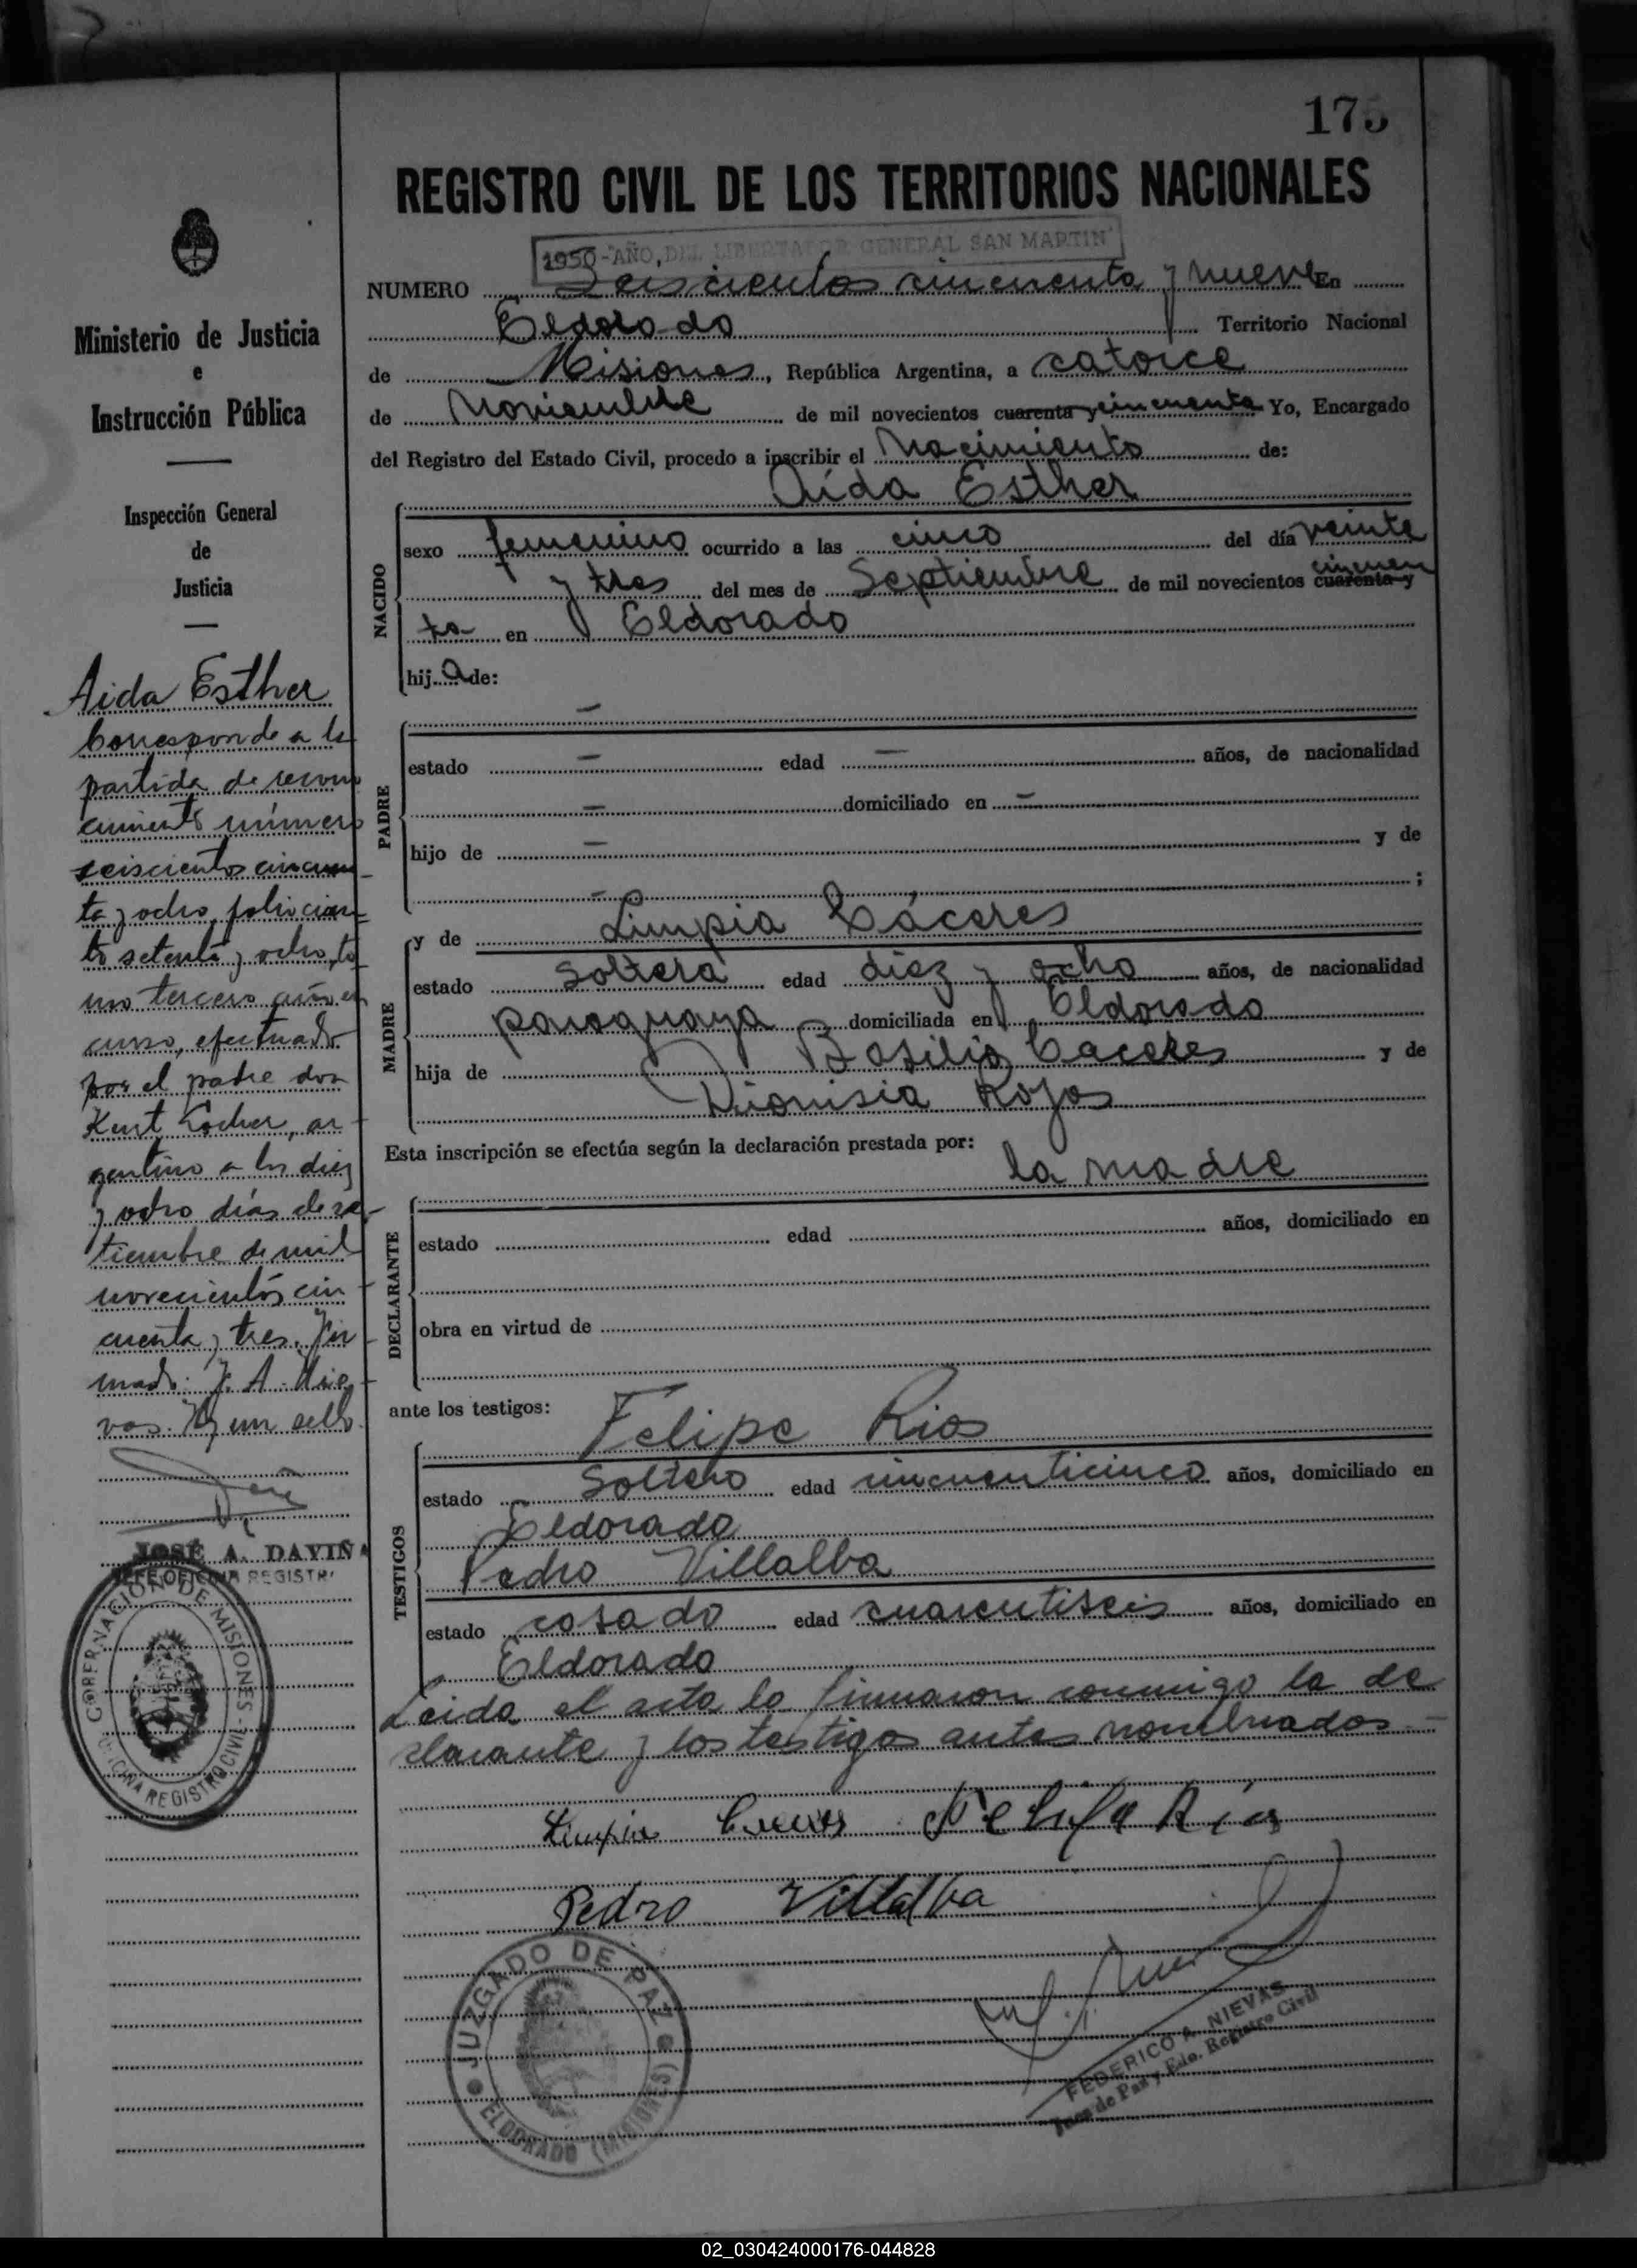 175
REGISTRO CIVIL DE LOS TERRITORIOS NACIONALES
1950-"AÑO, DEL LIBERTADOR GENERAL SAN MARTIN"
NUMERO Seiscientos cincuenta y nueve En
Eldorado Territorio Nacional
de Misiones, República Argentina, a catorce
de Noviembre de mil novecientos cuarenta y cincuenta Yo, Encargado
del Registro del Estado Civil, procedo a inscribir el Nacimiento de:
Aída Esther
NACIDO
sexo femenino ocurrido a las cinco del día veinte
y tres del mes de Septiembre de mil novecientos cuarenta y cincuen
ta en Eldorado
hij a de:
PADRE
—
estado — edad — años, de nacionalidad
— domiciliado en —
hijo de — y de
— ;
MADRE
y de Limpia Cáceres
estado Soltera edad diez y ocho años, de nacionalidad
paraguaya domiciliada en Eldorado
hija de Basilio Caceres y de
Dionisia Rojas
Esta inscripción se efectúa según la declaración prestada por:
la madre
DECLARANTE
estado edad años, domiciliado en
obra en virtud de
ante los testigos:
TESTIGOS
Felipe Rios
estado Soltero edad cincuenticinco años, domiciliado en
Eldorado
Pedro Villalba
estado casado edad cuarentiseis años, domiciliado en
Eldorado
Leida el acta la firmaron conmigo la de
clarante y los testigos antes nombrados.—
Limpia Caceres Felipe Rios
Pedro Villalba
JUZGADO DE PAZ
ELDORADO (MISIONES)
FEDERICO A. NIEVAS
Juez de Paz y Edo. Registro Civil
Ministerio de Justicia
e
Instrucción Pública
Inspección General
de
Justicia
Aida Esther
Corresponde a la
partida de recono
cimiento número
seiscientos cincuen
ta y ocho, folio cien
to setenta y ocho, to
mo tercero año en
curso, efectuado
por el padre don
Kurt Locher, ar
gentino a los diez
y ocho días de se
tiembre de mil
novecientos cin
cuenta y tres. Fir
mado: F. A. Nie
vas. Hay un sello.
JOSÉ A. DAVIÑA
JEFE OFICINA REGISTR
GOBERNACION DE MISIONES -
OFICINA REGISTRO CIVIL
02_030424000176-044828